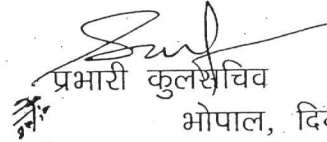 प्रभारी कुलसचिव
भोपाल,